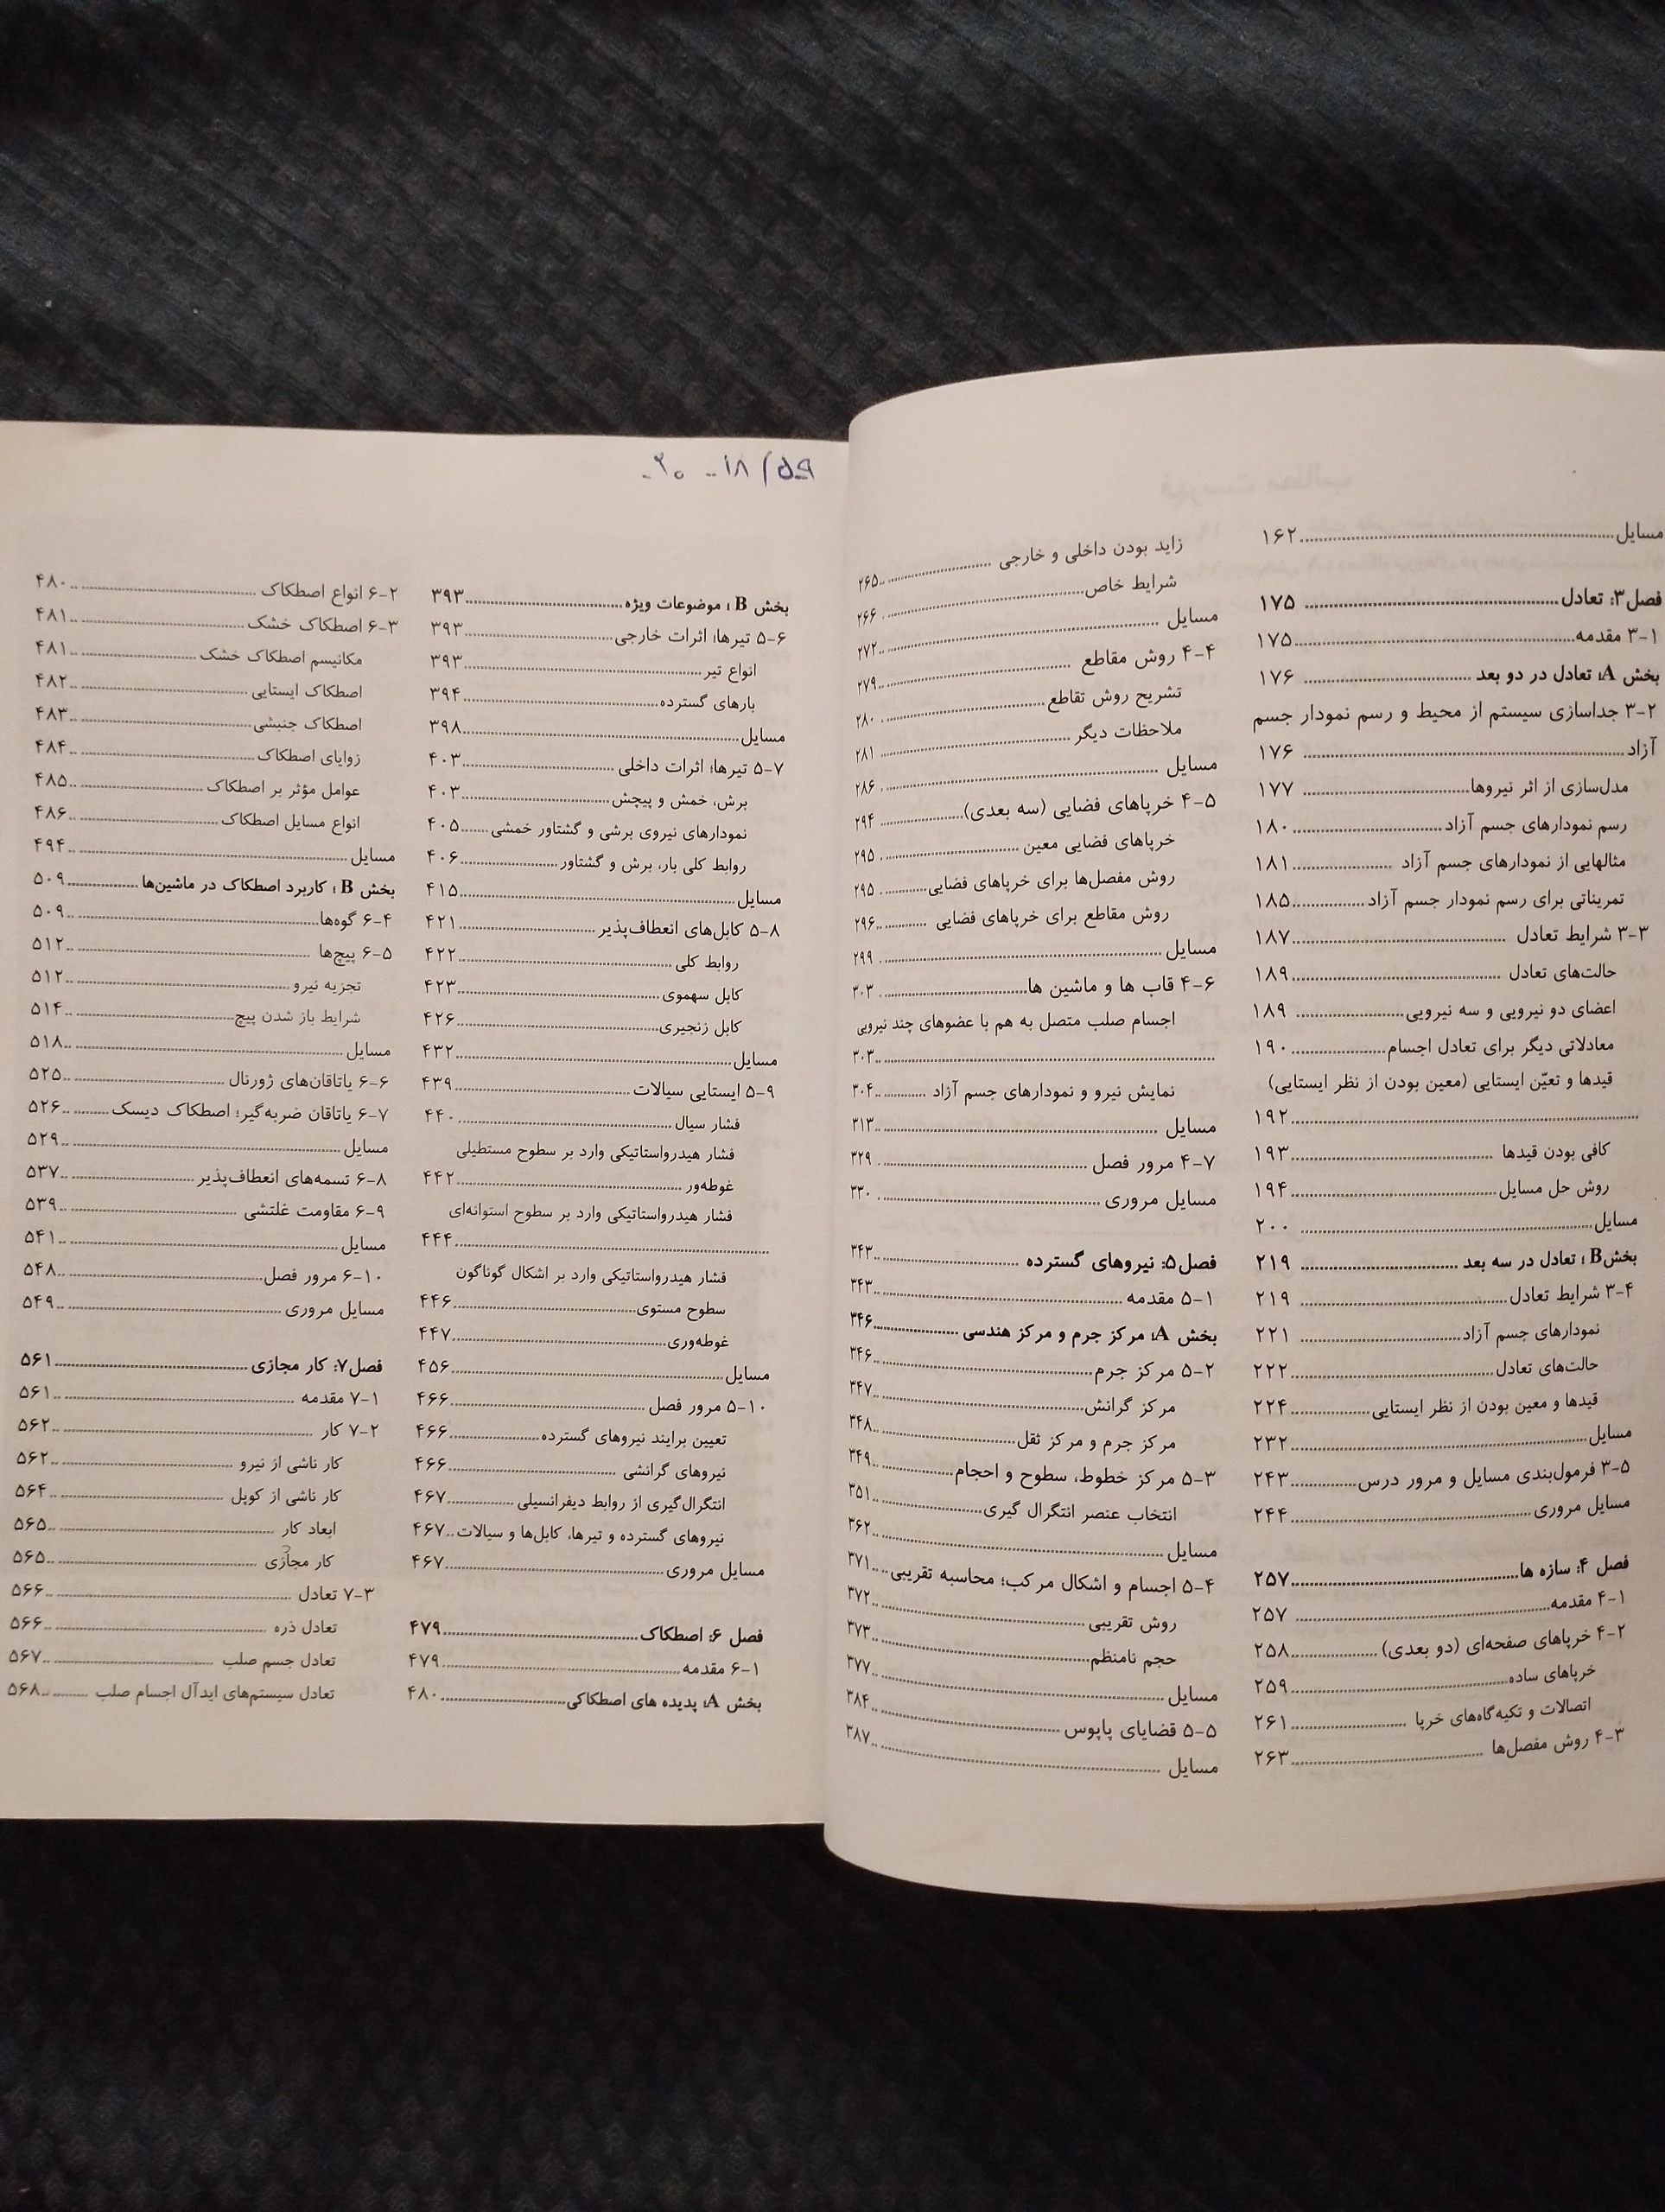 مسایل ........ ۱۶۲
فصل ۳: تعادل ........ ۱۷۵
۳-۱ مقدمه ........ ۱۷۵
بخش A؛ تعادل در دو بعد ........ ۱۷۶
۳-۲ جداسازی سیستم از محیط و رسم نمودار جسم
آزاد ........ ۱۷۶
مدل‌سازی از اثر نیروها ........ ۱۷۷
رسم نمودارهای جسم آزاد ........ ۱۸۰
مثالهایی از نمودارهای جسم آزاد ........ ۱۸۱
تمریناتی برای رسم نمودار جسم آزاد ........ ۱۸۵
۳-۳ شرایط تعادل ........ ۱۸۷
حالت‌های تعادل ........ ۱۸۹
اعضای دو نیرویی و سه نیرویی ........ ۱۸۹
معادلاتی دیگر برای تعادل اجسام ........ ۱۹۰
قیدها و تعیّن ایستایی (معین بودن از نظر ایستایی)
........ ۱۹۲
کافی بودن قیدها ........ ۱۹۳
روش حل مسایل ........ ۱۹۴
مسایل ........ ۲۰۰
بخش B ؛ تعادل در سه بعد ........ ۲۱۹
۳-۴ شرایط تعادل ........ ۲۱۹
نمودارهای جسم آزاد ........ ۲۲۱
حالت‌های تعادل ........ ۲۲۲
قیدها و معین بودن از نظر ایستایی ........ ۲۲۴
مسایل ........ ۲۳۲
۳-۵ فرمول‌بندی مسایل و مرور درس ........ ۲۴۳
مسایل مروری ........ ۲۴۴
فصل ۴: سازه ها ........ ۲۵۷
۴-۱ مقدمه ........ ۲۵۷
۴-۲ خرپاهای صفحه‌ای (دو بعدی) ........ ۲۵۸
خرپاهای ساده ........ ۲۵۹
اتصالات و تکیه‌گاه‌های خرپا ........ ۲۶۱
۴-۳ روش مفصل‌ها ........ ۲۶۳
زاید بودن داخلی و خارجی ........ ۲۶۵
شرایط خاص ........ ۲۶۶
مسایل ........ ۲۷۲
۴-۴ روش مقاطع ........ ۲۷۹
تشریح روش تقاطع ........ ۲۸۰
ملاحظات دیگر ........ ۲۸۱
مسایل ........ ۲۸۶
۴-۵ خرپاهای فضایی (سه بعدی) ........ ۲۹۴
خرپاهای فضایی معین ........ ۲۹۵
روش مفصل‌ها برای خرپاهای فضایی ........ ۲۹۵
روش مقاطع برای خرپاهای فضایی ........ ۲۹۶
مسایل ........ ۲۹۹
۴-۶ قاب ها و ماشین ها ........ ۳۰۳
اجسام صلب متصل به هم با عضوهای چند نیرویی
........ ۳۰۳
نمایش نیرو و نمودارهای جسم آزاد ........ ۳۰۴
مسایل ........ ۳۱۳
۴-۷ مرور فصل ........ ۳۲۹
مسایل مروری ........ ۳۳۰
فصل ۵: نیروهای گسترده ........ ۳۴۳
۵-۱ مقدمه ........ ۳۴۳
بخش A؛ مرکز جرم و مرکز هندسی ........ ۳۴۶
۵-۲ مرکز جرم ........ ۳۴۶
مرکز گرانش ........ ۳۴۷
مرکز جرم و مرکز ثقل ........ ۳۴۸
۵-۳ مرکز خطوط، سطوح و احجام ........ ۳۴۹
انتخاب عنصر انتگرال گیری ........ ۳۵۱
مسایل ........ ۳۶۲
۵-۴ اجسام و اشکال مرکب؛ محاسبه تقریبی ........ ۳۷۱
روش تقریبی ........ ۳۷۲
حجم نامنظم ........ ۳۷۳
مسایل ........ ۳۷۷
۵-۵ قضایای پاپوس ........ ۳۸۴
مسایل ........ ۳۸۷
بخش B ؛ موضوعات ویژه ........ ۳۹۳
۵-۶ تیرها؛ اثرات خارجی ........ ۳۹۳
انواع تیر ........ ۳۹۳
بارهای گسترده ........ ۳۹۴
مسایل ........ ۳۹۸
۵-۷ تیرها؛ اثرات داخلی ........ ۴۰۳
برش، خمش و پیچش ........ ۴۰۳
نمودارهای نیروی برشی و گشتاور خمشی ........ ۴۰۵
روابط کلی بار، برش و گشتاور ........ ۴۰۶
مسایل ........ ۴۱۵
۵-۸ کابل‌های انعطاف‌پذیر ........ ۴۲۱
روابط کلی ........ ۴۲۲
کابل سهموی ........ ۴۲۳
کابل زنجیری ........ ۴۲۶
مسایل ........ ۴۳۲
۵-۹ ایستایی سیالات ........ ۴۳۹
فشار سیال ........ ۴۴۰
فشار هیدرواستاتیکی وارد بر سطوح مستطیلی
غوطه‌ور ........ ۴۴۲
فشار هیدرواستاتیکی وارد بر سطوح استوانه‌ای
........ ۴۴۴
فشار هیدرواستاتیکی وارد بر اشکال گوناگون
سطوح مستوی ........ ۴۴۶
غوطه‌وری ........ ۴۴۷
مسایل ........ ۴۵۶
۵-۱۰ مرور فصل ........ ۴۶۶
تعیین برایند نیروهای گسترده ........ ۴۶۶
نیروهای گرانشی ........ ۴۶۶
انتگرال‌گیری از روابط دیفرانسیلی ........ ۴۶۷
نیروهای گسترده و تیرها، کابل‌ها و سیالات ..۴۶۷
مسایل مروری ........ ۴۶۷
فصل ۶: اصطکاک ........ ۴۷۹
۶-۱ مقدمه ........ ۴۷۹
بخش A؛ پدیده های اصطکاکی ........ ۴۸۰
۶-۲ انواع اصطکاک ........ ۴۸۰
۶-۳ اصطکاک خشک ........ ۴۸۱
مکانیسم اصطکاک خشک ........ ۴۸۱
اصطکاک ایستایی ........ ۴۸۲
اصطکاک جنبشی ........ ۴۸۳
زوایای اصطکاک ........ ۴۸۴
عوامل مؤثر بر اصطکاک ........ ۴۸۵
انواع مسایل اصطکاک ........ ۴۸۶
مسایل ........ ۴۹۴
بخش B ؛ کاربرد اصطکاک در ماشین‌ها ........ ۵۰۹
۶-۴ گوه‌ها ........ ۵۰۹
۶-۵ پیچ‌ها ........ ۵۱۲
تجزیه نیرو ........ ۵۱۲
شرایط باز شدن پیچ ........ ۵۱۴
مسایل ........ ۵۱۸
۶-۶ یاتاقان‌های ژورنال ........ ۵۲۵
۶-۷ یاتاقان ضربه‌گیر؛ اصطکاک دیسک ........ ۵۲۶
مسایل ........ ۵۲۹
۶-۸ تسمه‌های انعطاف‌پذیر ........ ۵۳۷
۶-۹ مقاومت غلتشی ........ ۵۳۹
مسایل ........ ۵۴۱
۶-۱۰ مرور فصل ........ ۵۴۸
مسایل مروری ........ ۵۴۹
فصل ۷: کار مجازی ........ ۵۶۱
۷-۱ مقدمه ........ ۵۶۱
۷-۲ کار ........ ۵۶۲
کار ناشی از نیرو ........ ۵۶۲
کار ناشی از کوپل ........ ۵۶۴
ابعاد کار ........ ۵۶۵
کار مجازی ........ ۵۶۵
۷-۳ تعادل ........ ۵۶۶
تعادل ذره ........ ۵۶۶
تعادل جسم صلب ........ ۵۶۷
تعادل سیستم‌های ایدآل اجسام صلب ........ ۵۶۸